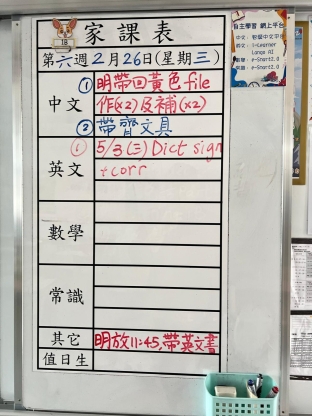 18
家課表
第六週2月26日(星期三)
中文
① 明帶回黃色file
作(x2)及補(x2)
② 帶齊文具
英文
① 5/3(三) Dict sign
+corr
數學
常識
其它
明放11:45,帶英文書
值日生
自主學習 網上平台
中文:
i-Learner
e-Smart2.0
e-Smart2.0